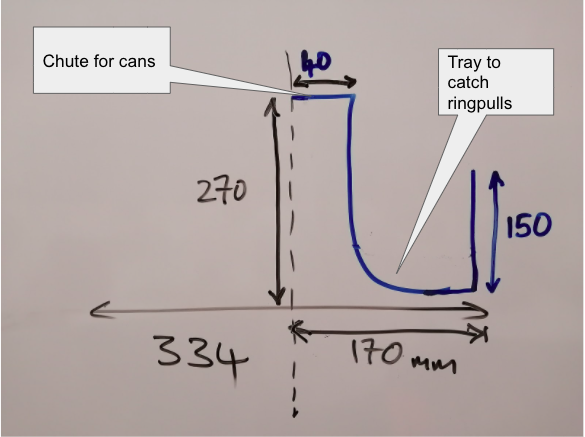 Chute for cans
40
Tray to
catch
ringpulls
270
150
334
170 mm